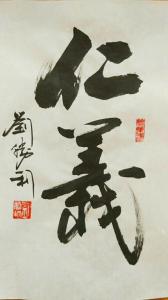 仁義
劉勝利